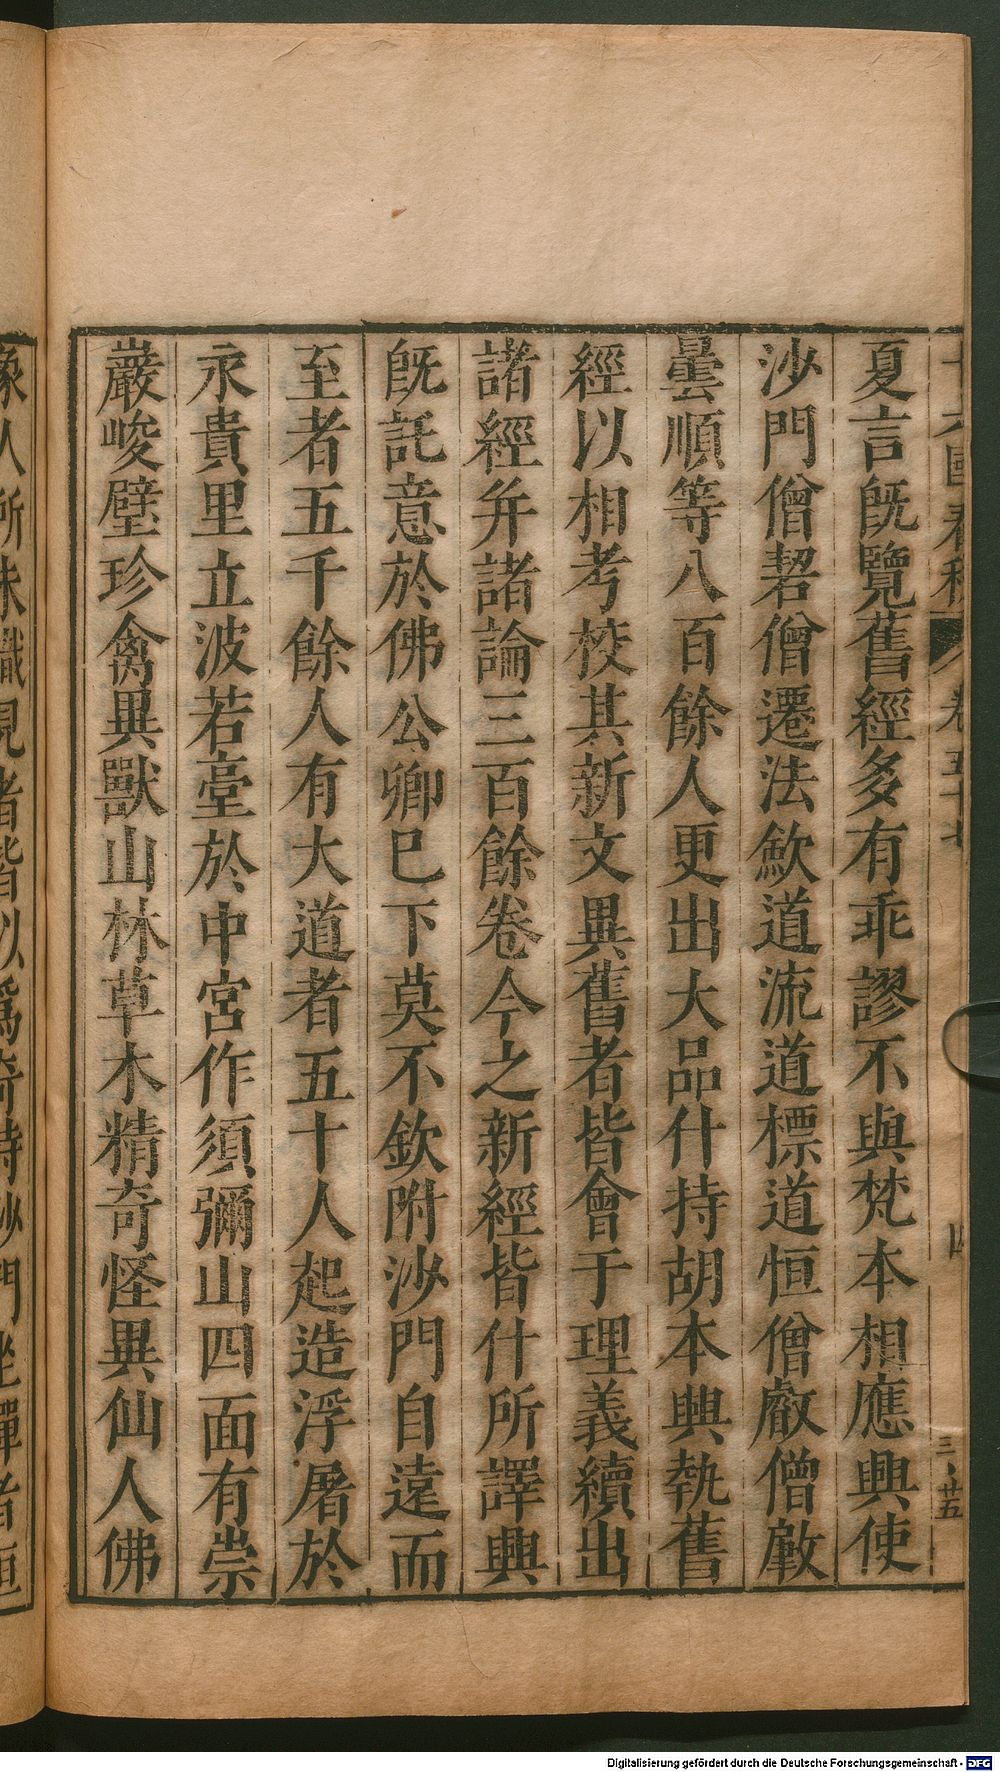 十六國春秋 卷五十七 四
三·廿五
夏言既覽舊經多有乖謬不與梵本相應興使
沙門僧䂮僧遷法欽道流道標道恒僧叡僧肇
曇順等八百餘人更出大品什持胡本興執舊
經以相考校其新文異舊者皆會于理義續出
諸經并諸論三百餘卷今之新經皆什所譯興
既託意於佛公卿巳下莫不欽附沙門自遠而
至者五千餘人有大道者五十人起造浮屠於
永貴里立波若臺於中宮作須彌山四面有崇
巖峻壁珍禽異獸山林草木精奇怪異仙人佛
象人所未識見者皆以爲奇時沙門坐禪者恒
Digitalisierung gefördert durch die Deutsche Forschungsgemeinschaft - DFG